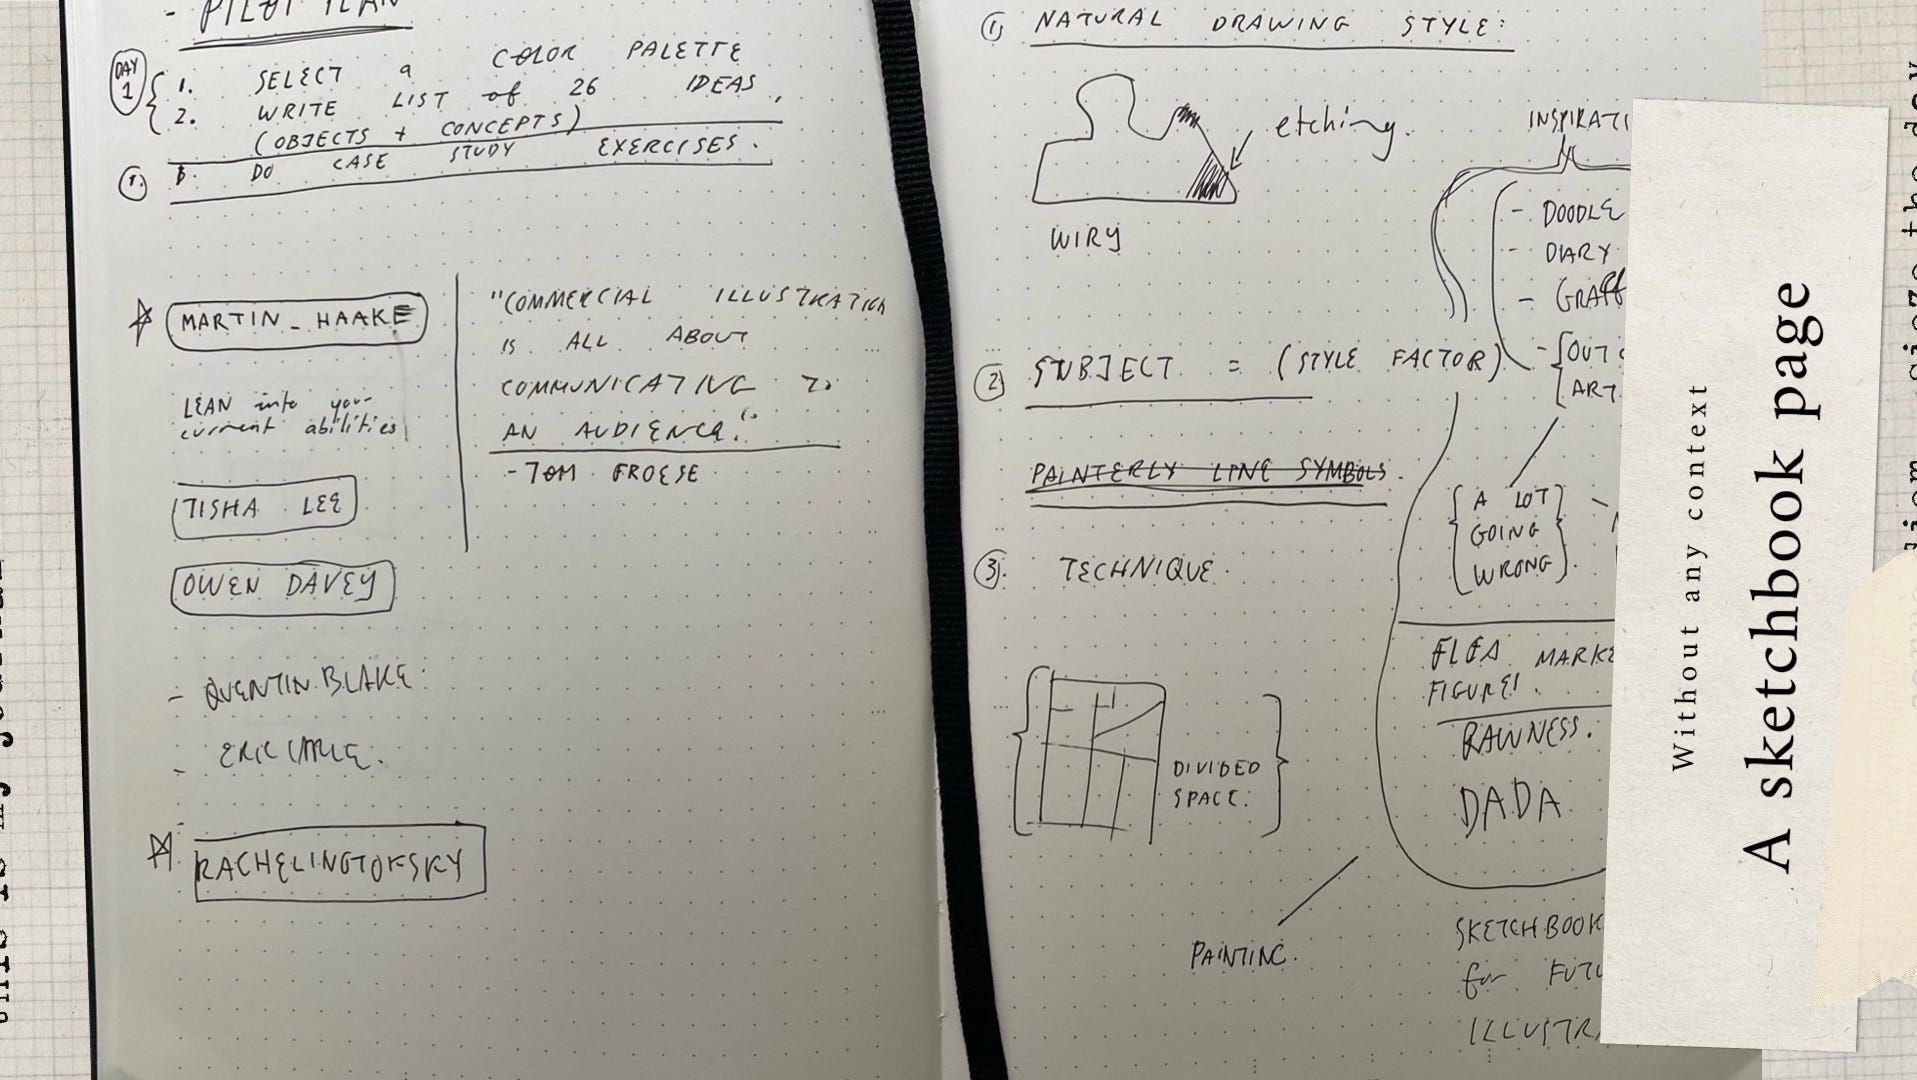 - PILOT PLAN
DAY 1
1. SELECT a COLOR PALETTE
2. WRITE LIST of 26 IDEAS,
(OBJECTS + CONCEPTS)
1. DO CASE STUDY EXERCISES.
MARTIN_HAAKE
LEAN into your
current abilities
TISHA LEE
OWEN DAVEY
- QUENTIN BLAKE.
- ERIC CARLE.
"COMMERCIAL ILLUSTRATION
IS ALL ABOUT
COMMUNICATING TO
AN AUDIENCE."
- TOM FROESE
1) NATURAL DRAWING STYLE:
etching.
WIRY
INSPIRATI
- DOODLE
- DIARY
- GRAFF
2) SUBJECT = (STYLE FACTOR)
- {OUT
ART.
PAINTERLY LINE SYMBOLS.
{A LOT
GOING
WRONG}.
3). TECHNIQUE.
FLEA MARKE
FIGURE!
RAWNESS.
DADA
DIVIDED
SPACE.
PAINTING.
SKETCHBOOK
for FUTU
ILLUSTRA
Without any context
A sketchbook page